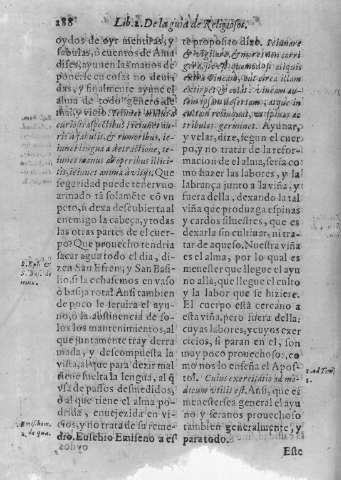 188 Lib. I. De la guia de Religiosos.
oydos de oyr mentiras, y
fabulas, ô cuentos de Ama
dises, ayunen las manos de
ponerse en cosas no deui-
das, y finalmente ayune el
alma de todo genero de
mal, y vicio.
curiosis aspectibus, ieiunet au-
ris à fabulis, & rumoribus, ie-
iunet lingua à detractione, ie-
iunet manus ab operibus illici-
tis, ieiunet anima à vitijs. Que
seguridad puede tener vn o
armado tã solamẽte con vn
peto, si dexa descubierta al
enemigo la cabeça, y todas
las otras partes de el cuer-
po? Que prouecho tendria
sacar agua todo el dia, di-
zen San Efren, y San Basi-
lio, si la echasemos en vaso
ô basija rota? Ansi tambien
de poco le seruira el ayu-
no, ô la abstinencia de so-
los los mantenimientos, al
que juntamente tray derra
mada, y descompuesta la
vista, al que para dezir mal
tiene suelta la lengua, al q̃
vsa de passos desmedidos,
ô al que tiene el alma po-
drida, enuejezida en vi-
cios, y no trata de su reme-
dio. Eusebio Emiseno a est
te proposito dize.
Ayunar,
y velar, dize, segun el cuer-
po, y no tratar de la refor-
macion de el alma, seria co
mo hazer las labores, y la
labrança junto a la viña, y
fuera della, dexando la tal
viña que produzga espinas
y cardos siluestres, que es
dexarla sin cultiuar, ni tra-
tar de aqueso. Nuestra viña
es el alma, por lo qual es
menester que llegue el ayu
no alla, que llegue el culto
y la labor que se hiziere.
El cuerpo está cercano a
esta viña, pero fuera della:
cuyas labores, y cuyos exer
cicios, si paran en el, son
muy poco prouechosos, co
mo nos lo enseña el Apos-
tol. Cuius exercitatio ad mo-
dicum vtilis est. Ansi, que es
menester sea general el ayu
no y seranos prouechoso
tambien generalmente, y
para todo.
Este